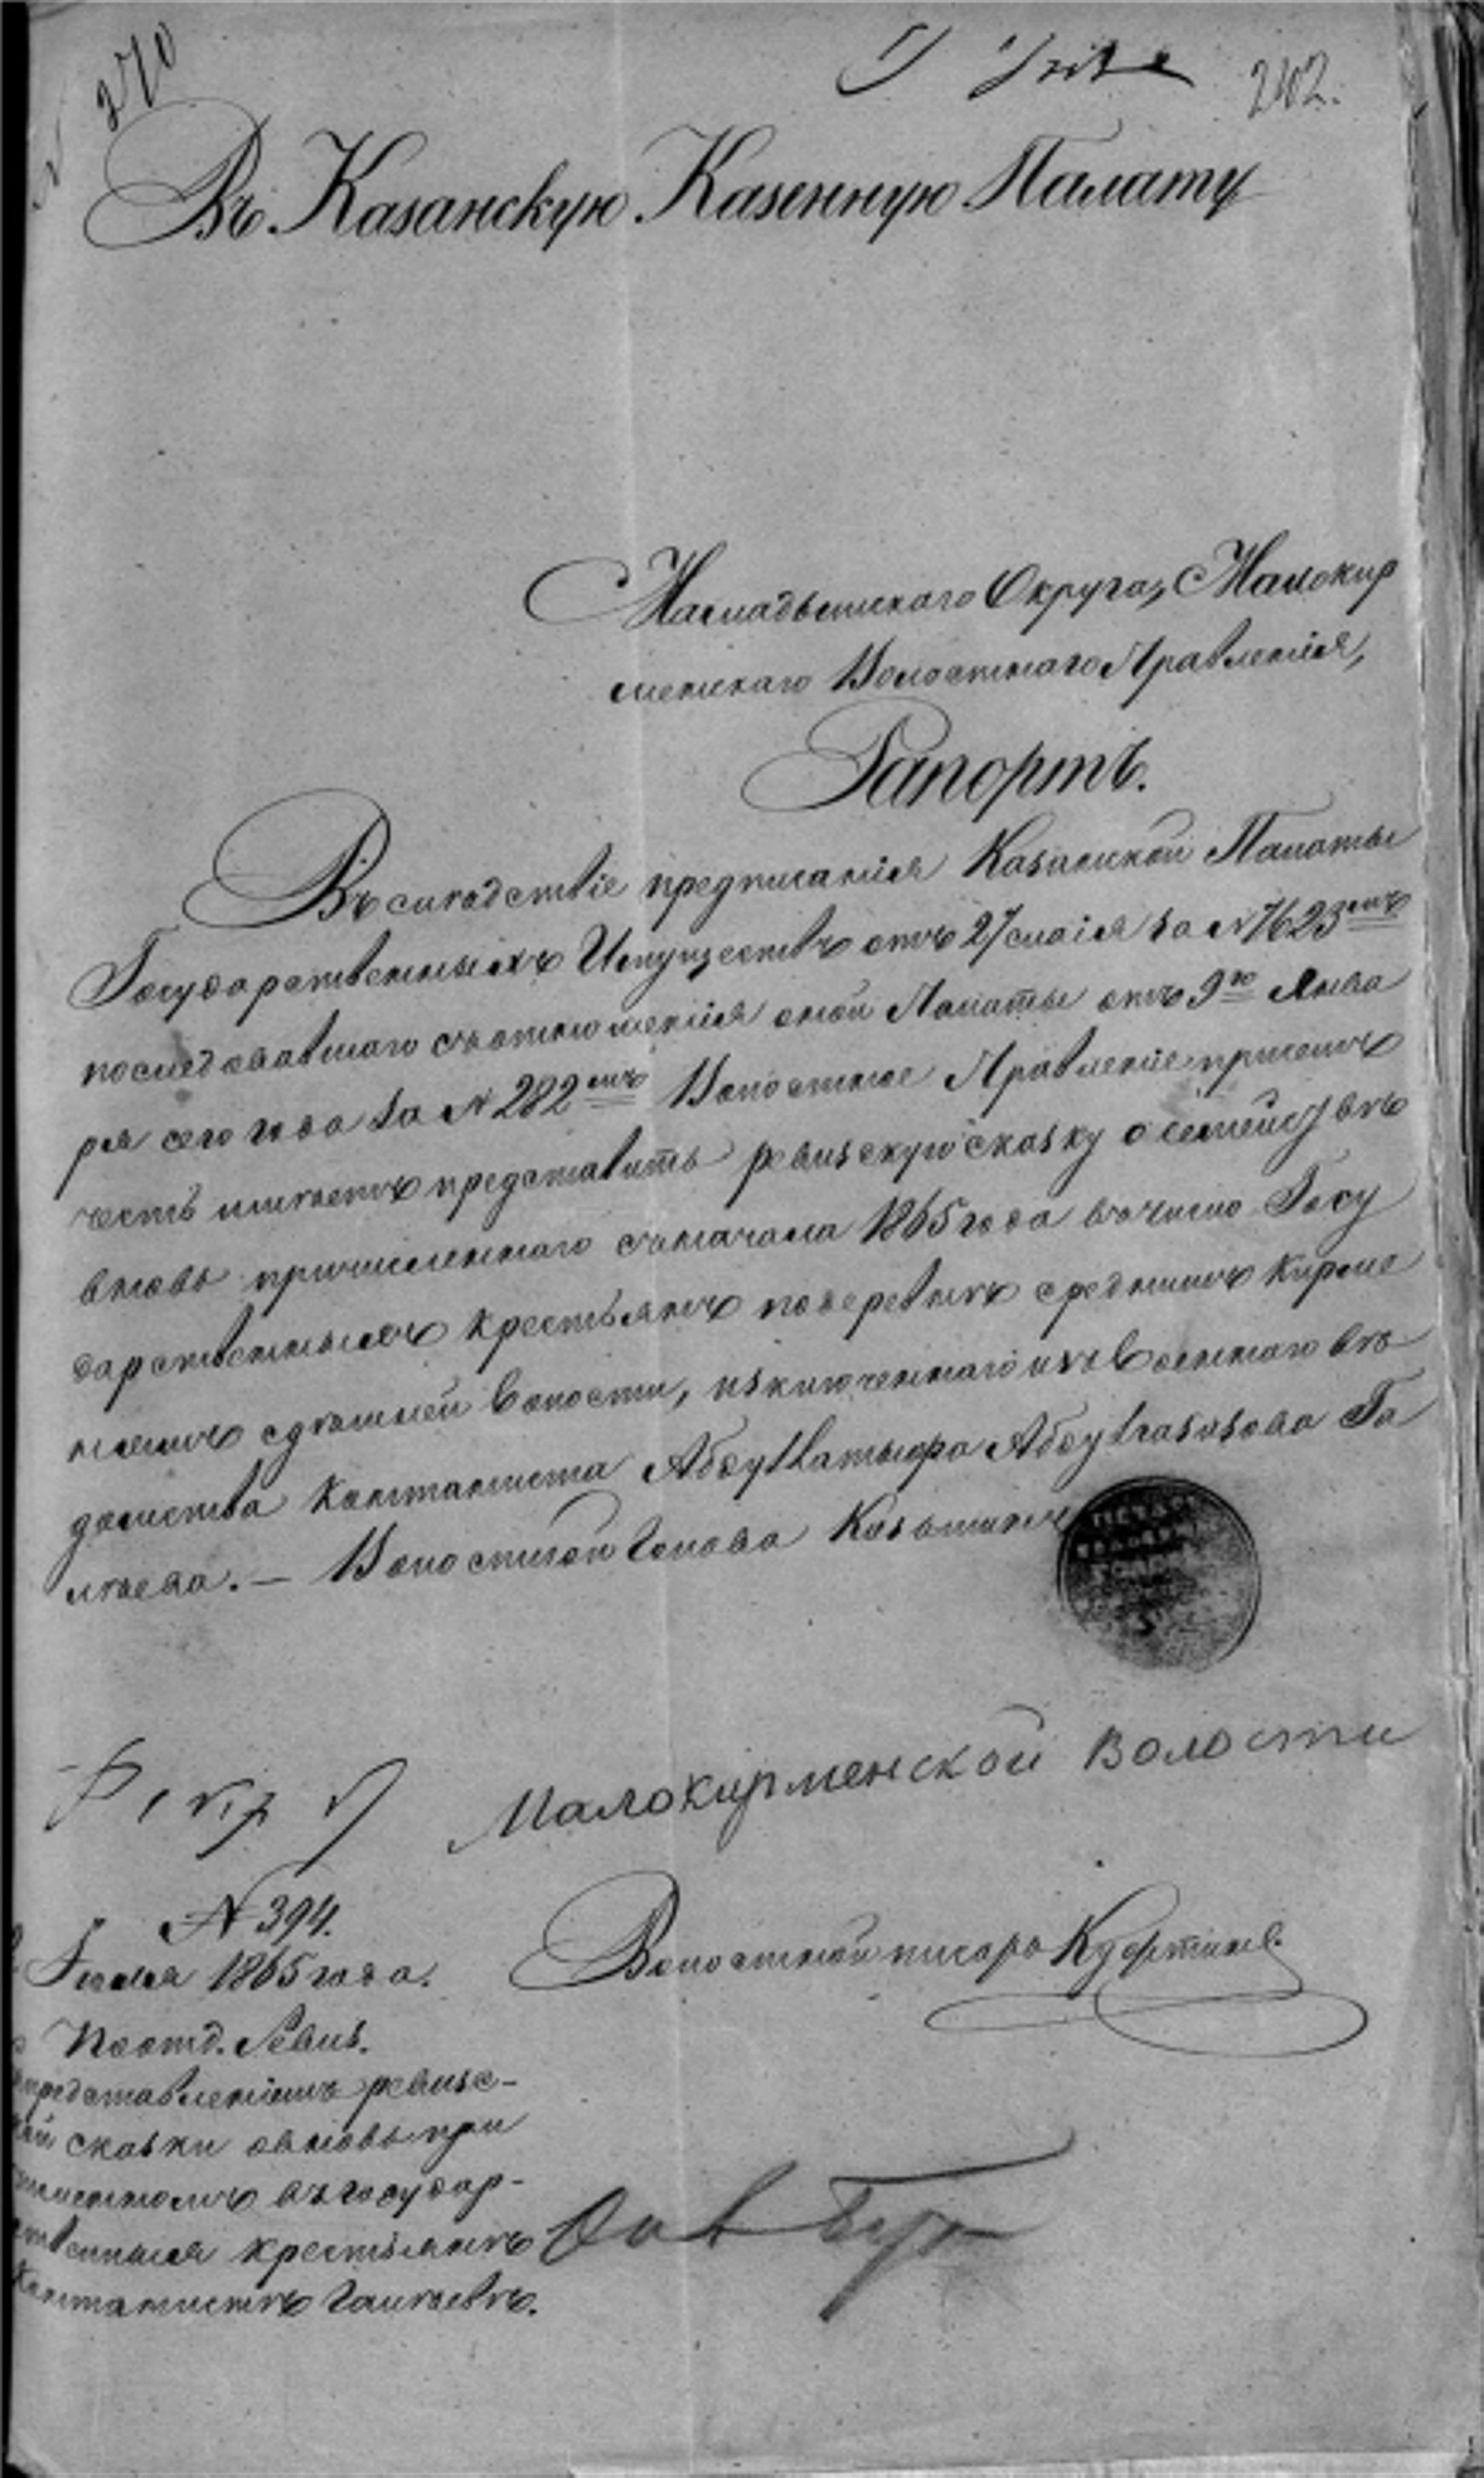 270
242.
Въ Казанскую Казенную Палату
Мамадышскаго Округа, Малокир
менскаго Волостнаго Правленія,
Рапортъ.
Въ слѣдствіе предписанія Казанской Палаты
Государственныхъ Имуществъ отъ 27 маія за № 7623мъ
последовавшаго съ отношенія оной Палаты отъ 9го Янва
ря сего года за № 282мъ Волостное Правленіе при семъ
честь имѣетъ представить ревизскую сказку о семействѣ
вновь причисленнаго съ начала 1865 года въ число Госу
дарственныхъ крестьянъ по деревнѣ средним Кирме
нямъ здѣшней волости, изключеннаго изъ военнаго вѣ
домства кантаниста Абдуллатыфа Абдулгазизова Га
лѣева. — Волостной Голова Казымкинъ
ПЕЧАТЬ
Малокирменской Волости
№ 394.
Іюня 1865 года.
Волостной писарь Куфтинъ
По отд. Ревиз.
представленіемъ ревизс-
кой сказки о вновь при
численномъ въ государ-
ственныя крестьянъ
Кантанистѣ Галѣевѣ.